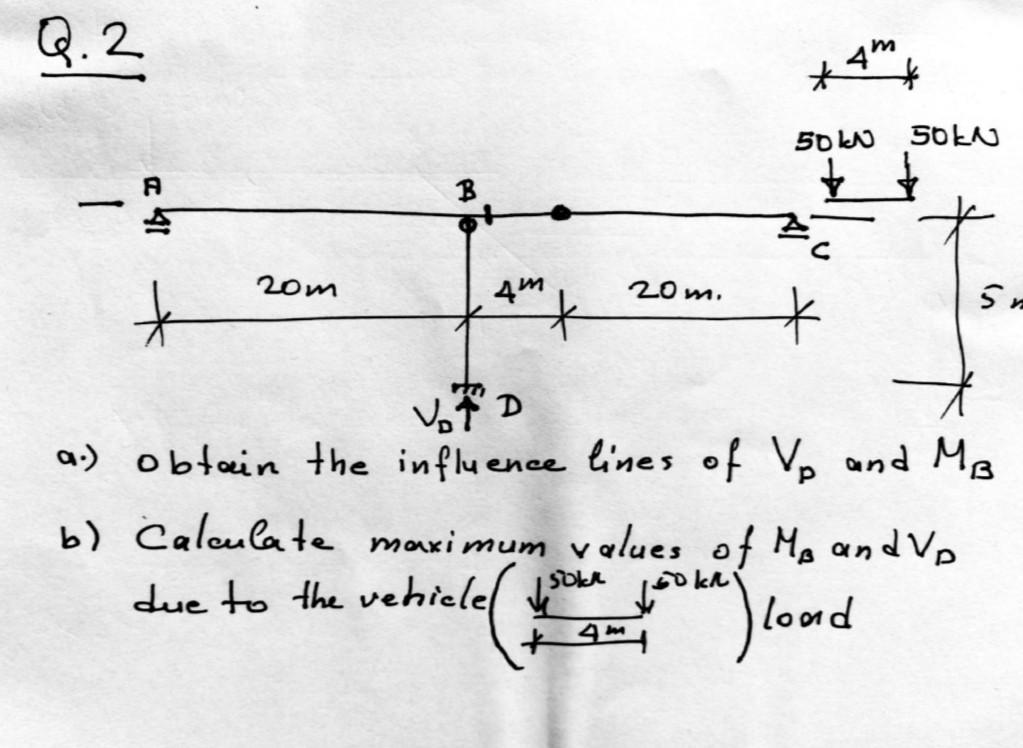 Q.2
4m
50kN 50kN
A B
C
20m 4m 20m.
5
VD D
a.) obtain the influence lines of VD and MB
b) Calculate maximum values of MB and VD
due to the vehicle ( 50kN 50kN ) load
4m